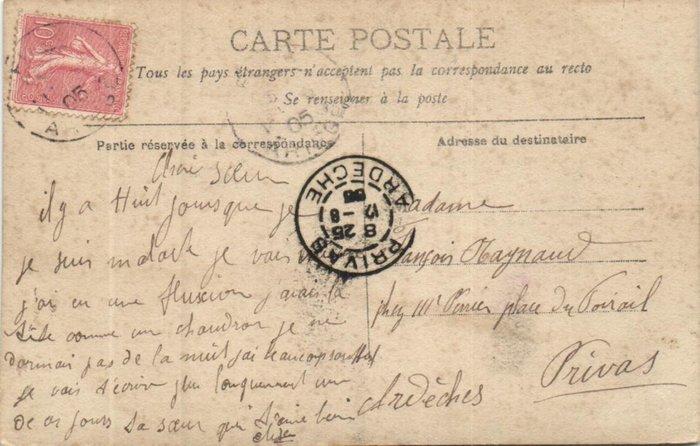 CARTE POSTALE
Tous les pays étrangers n'acceptent pas la correspondance au recto
Se renseigner à la poste
Partie réservée à la correspondance
Adresse du destinataire
Chère sœur
il y a Huit jours que je
je suis malade je vais
j'ai eu une fluxion j'avais la
tête comme un chaudron je ne
dormait pas de la nuit j'ai beaucoup souffert
je vais t'écrire plus longuement un
de ces jours ta sœur qui t'aime bien
Madame
François Raynaud
chez Mr place du Poirail
Privas
Ardèches
PRIVAS
ARDECHE
8 25
12 -8
05
10
05
05